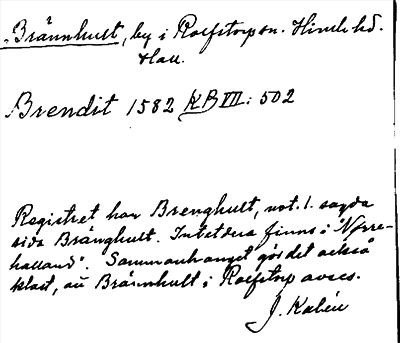 Brännhult, by i Rolfstorp sn. Himle hd.
Hall.
Brendit 1582 KB VII: 502
Registret har Brenghult, not. 1. sagda
sida Bränghult. Intetdera finns i "Norre-
halland". Sammanhanget gör det också
klart, att Brännhult i Rolfstorp avses.
J. Kalén